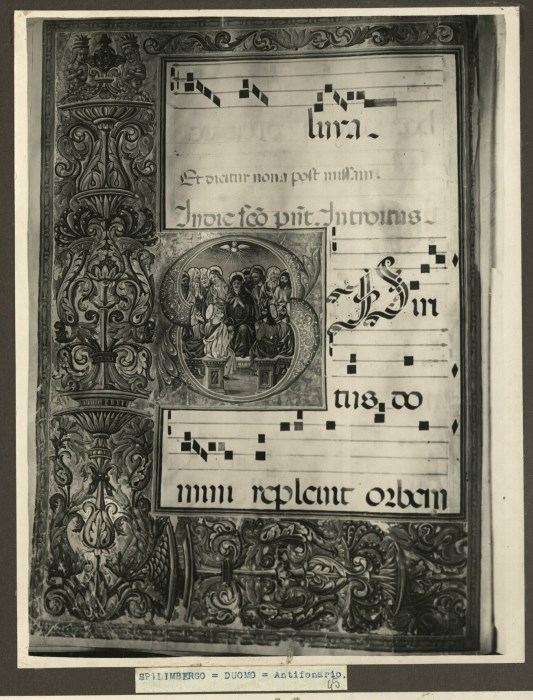 lura.
Et dicitur nona post missam.
In die scō pńt. Introitus
Spiri
tus do
mini repleuit orbem
SPILIMBERGO = DUOMO = Antifonario.